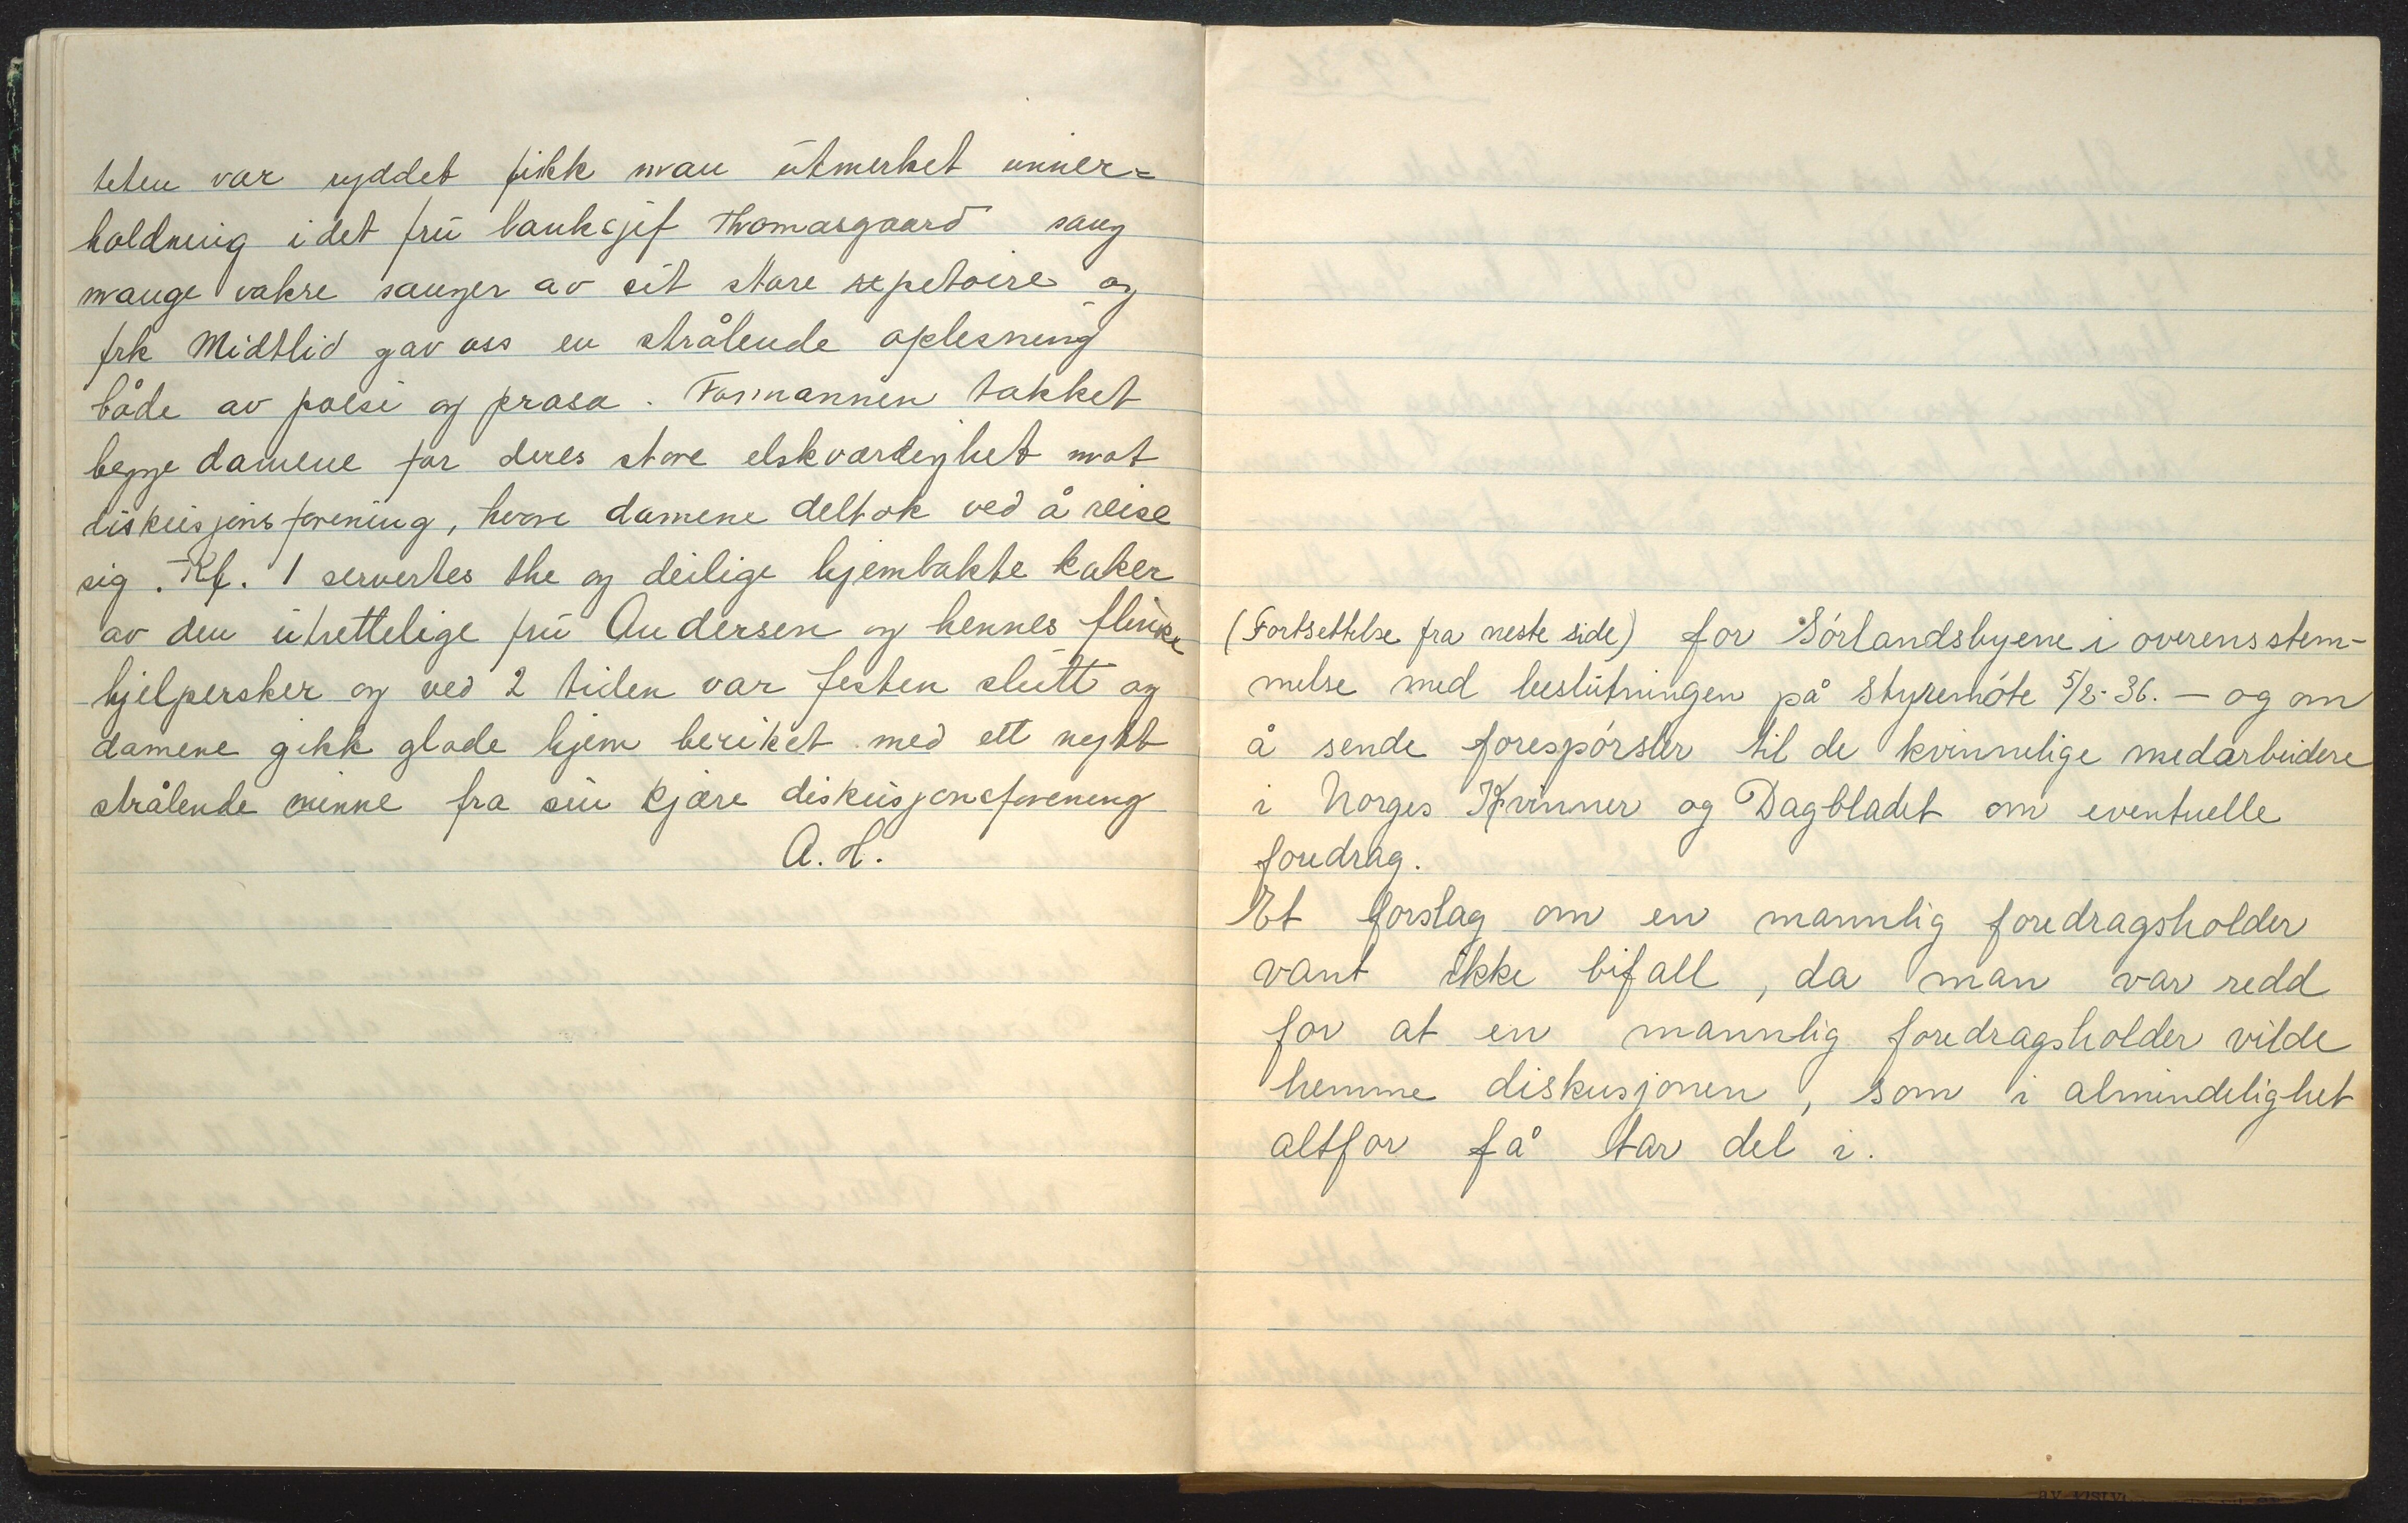 teten var ryddet fikk man utmerket unner=
holdning i det fru banksjef Thomasgaard sang
mange vakre sanger av sit store repetoire og
frk Midtlid gav oss en strålende oplesning
både av poesi og prosa. Formannen takket
begge damene for deres store elskværdighet mot
diskusjonsforening, hvore damene deltok ved å reise
sig. Kl. 1 servertes the og deilige hjembakte kaker
av den utrettelige fru Andersen og hennes flinke
hjelpersker og ved 2 tiden var festen slutt og
damene gikk glade hjem beriket med ett nytt
strålende minne fra sin kjære diskusjonsforening
A. H.
(Fortsettelse fra neste side) for Sørlandsbyene i overensstem-
melse med beslutningen på styremøte 5/2-36. — og om
å sende forespørsler til de kvinnelige medarbeidere
i Norges Kvinner og Dagbladet om eventuelle
foredrag.
Et forslag om en mannlig foredragsholder
vant ikke bifall, da man var redd
for at en mannlig foredragsholder vilde
hemme diskusjonen, som i almindelighet
altfor få tar del i.